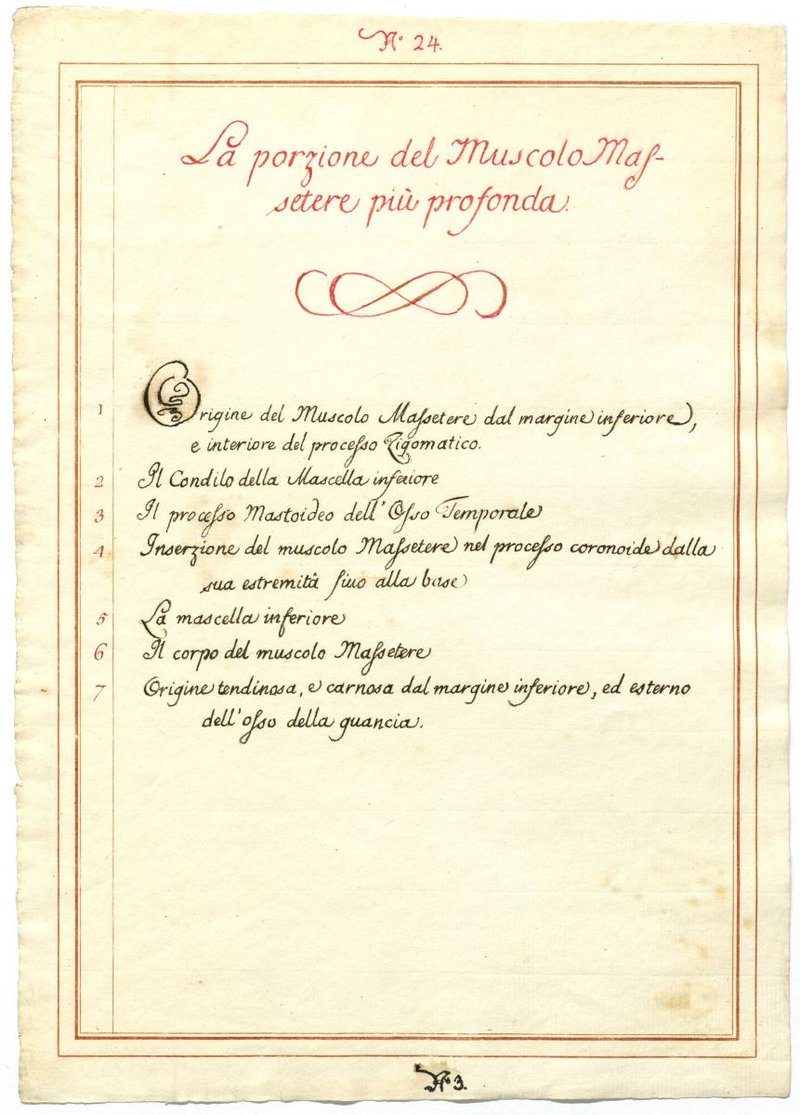 No 24.
La porzione del Muscolo Mas-
setere più profonda.
1 Origine del Muscolo Massetere dal margine inferiore,
e interiore del processo Zigomatico.
2 Il Condilo della Mascella inferiore
3 Il processo Mastoideo dell'Osso Temporale
4 Inserzione del muscolo Massetere nel processo coronoide dalla
sua estremità fino alla base
5 La mascella inferiore
6 Il corpo del muscolo Massetere
7 Origine tendinosa, e carnosa dal margine inferiore, ed esterno
dell'osso della guancia.
No 3.